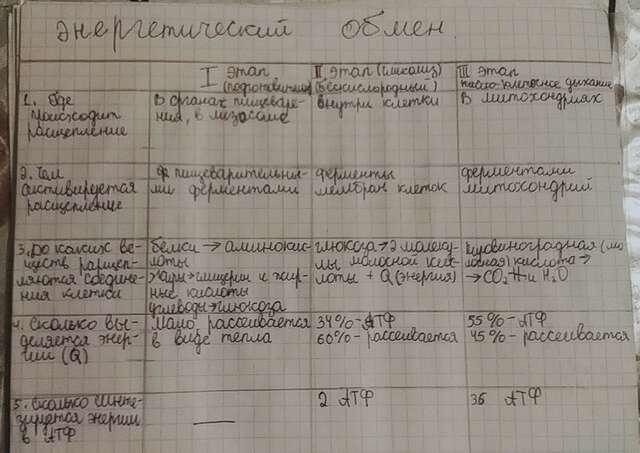 энергетический обмен.
I этап
(подготовительный)
II этап (гликолиз)
(бескислородный)
III этап
кисло-клеточное дыхание
1. Где
происходит
расщепление
В органах пищеваре-
ния, в лизосоме
внутри клетки
в митохондриях
2. Чем
активируется
расщепление
пищеварительны-
ми ферментами
ферменты
мембран клеток
ферментами
митохондрий
3. До каких ве-
ществ расщеп-
ляются соедине-
ния клетки
белки → аминокис-
лоты
Жиры→глицерин и жир-
ные кислоты
углеводы→глюкоза
глюкоза→2 молеку-
лы молочной кис-
лоты + Q (энергия)
Пировиноградная (мо-
лочная) кислота→
→CO2 и H2O
4. Сколько вы-
деляется энер-
гии (Q)
Мало, рассеивается
в виде тепла
34% - АТФ
60% - рассеивается
55% - АТФ
45% - рассеивается
5. Сколько синте-
зируется энергии
в АТФ
2 АТФ
36 АТФ